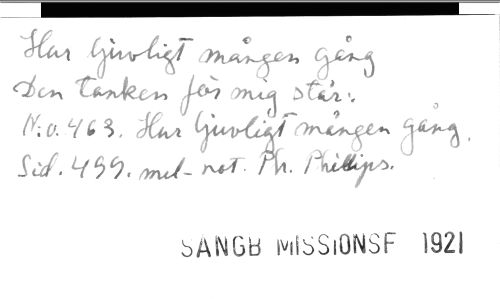 Hur ljuvligt mången gång
Den tanken för mig står:.
N:o. 463. Hur ljuvligt mången gång.
Sid. 499. mel- not. Ph. Phillips.
SANGB MISSIONSF 1921